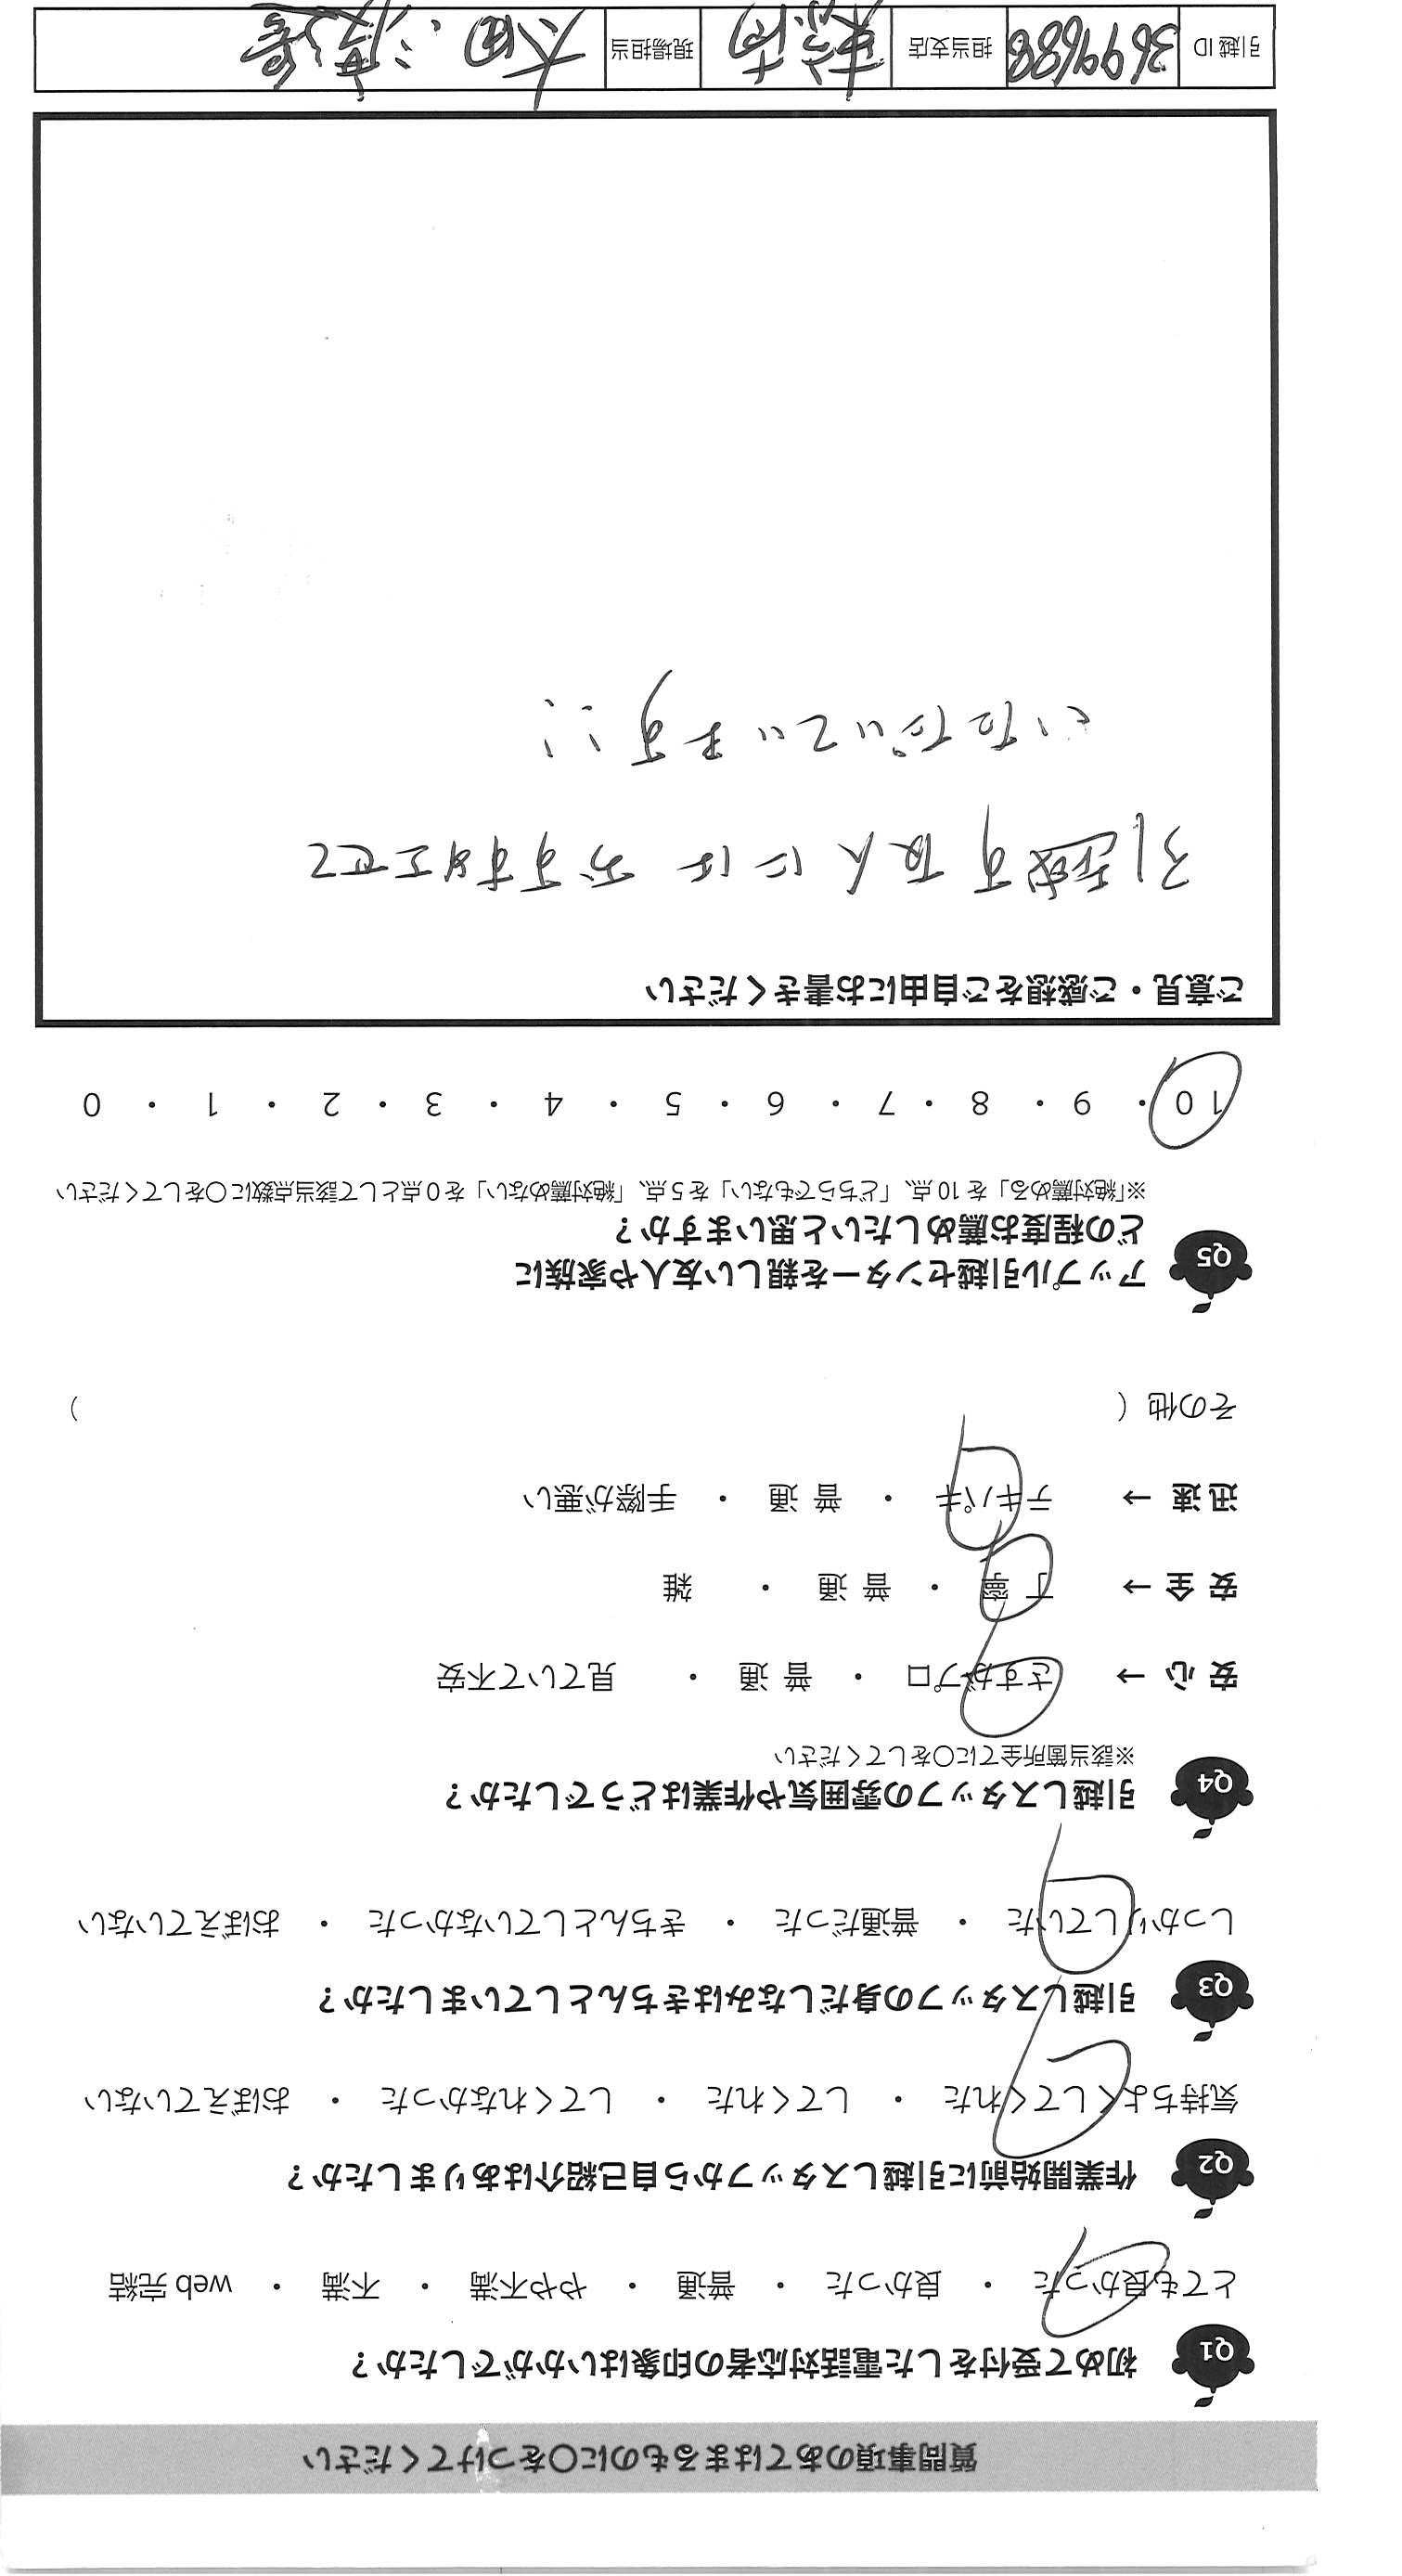 質問事項のあてはまるものに○をつけてください
Q1 初めて受付をした電話対応者の印象はいかがでしたか？
とても良かった ・ 良かった ・ 普通 ・ やや不満 ・ 不満 ・ web 完結
Q2 作業開始前に引越しスタッフから自己紹介はありましたか？
気持ちよくしてくれた ・ してくれた ・ してくれなかった ・ おぼえていない
Q3 引越しスタッフの身だしなみはきちんとしていましたか？
しっかりしていた ・ 普通だった ・ きちんとしていなかった ・ おぼえていない
Q4 引越しスタッフの雰囲気や作業はどうでしたか？
※該当箇所全てに○をしてください
安 心 → さすがプロ ・ 普 通 ・ 見ていて不安
安 全 → 丁 寧 ・ 普 通 ・ 雑
迅 速 → テキパキ ・ 普 通 ・ 手際が悪い
その他（ ）
Q5 アップル引越センターを親しい友人や家族に
どの程度お薦めしたいと思いますか？
※「絶対薦める」を 10 点、「どちらでもない」を 5 点、「絶対薦めない」を 0 点として該当点数に○をしてください
10 ・ 9 ・ 8 ・ 7 ・ 6 ・ 5 ・ 4 ・ 3 ・ 2 ・ 1 ・ 0
ご意見・ご感想をご自由にお書きください
引越す友人には おすすめエせて
いただいています!!
引越 ID 3699688 担当支店 現場担当 太田